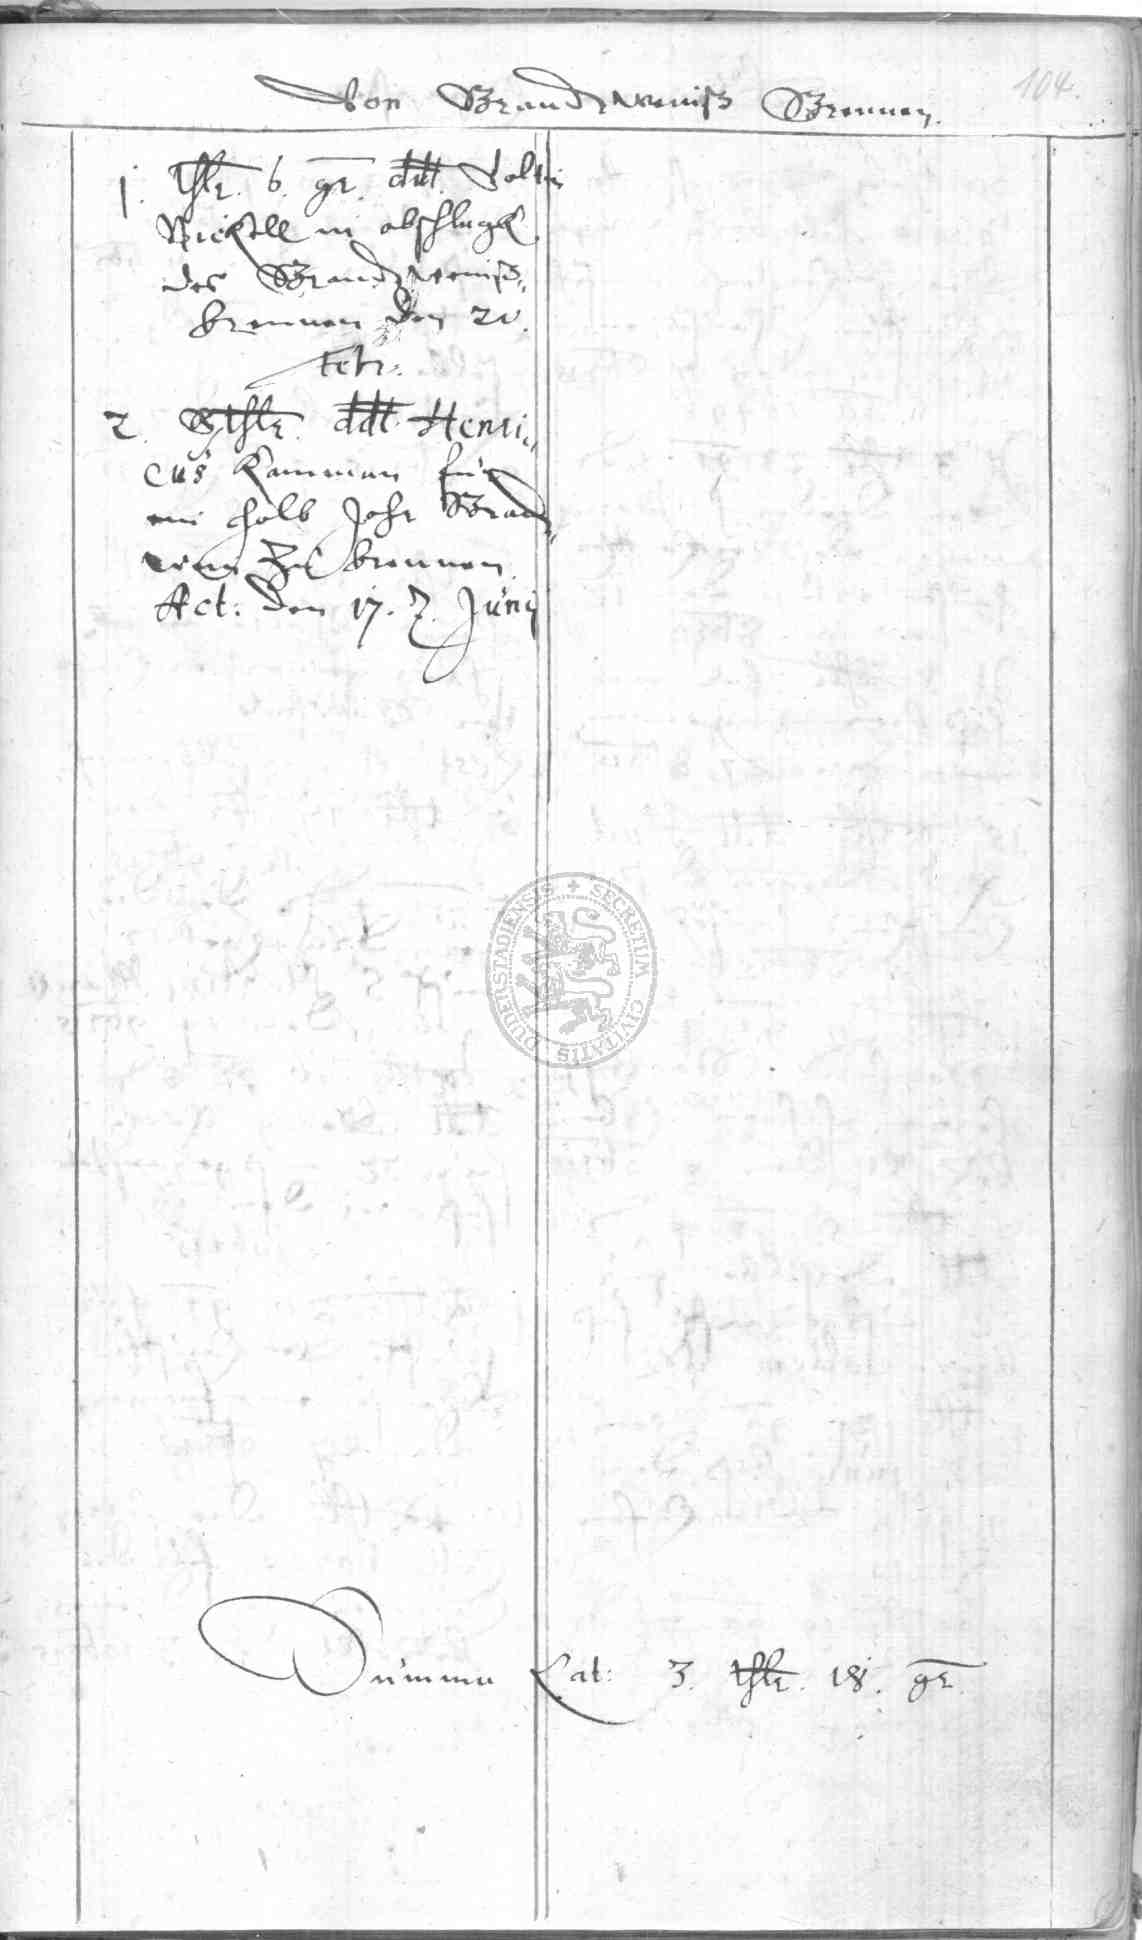 104.
Von Brandtweinß Brennen.
1. thlr. 6. gr. ddt. Voltin
Nickell in abschlagk
des Brandtweinß
brennen den 20.
Febr.
2. thlr. ddt Henri„
cus Kamman für
ein halb Jahr Brandt„
wein zu brennen
Act: den 17. Junij
Summa Lat: 3. thlr. 18. gr.
SECRETUM CIVITATIS DUDERSTADIENSIS